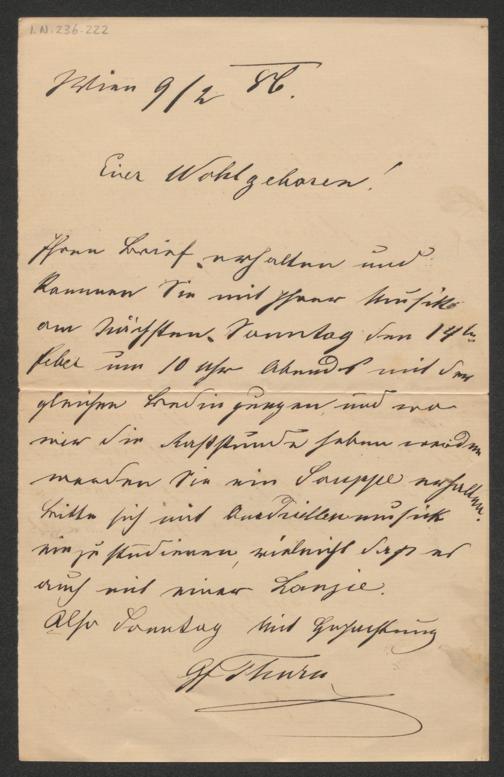 I.N. 236.222
Wien 9/2 86.
Euer Wohlgeboren!
Ihren Brief erhalten und
kommen Sie mit Ihrer Musik
am Nächsten Sonntag den 14ten
Feber um 10 Uhr Abends mit den
gleichen Bedingungen und wo
wir die Raststunde haben werden
werden Sie ein Souppe erhalten.
bitte sich mit Quadrillenmusick
einzustudieren, vieleicht daß es
auch mit einer
Also Sonntag Mit Hochachtung
Gf Thurn